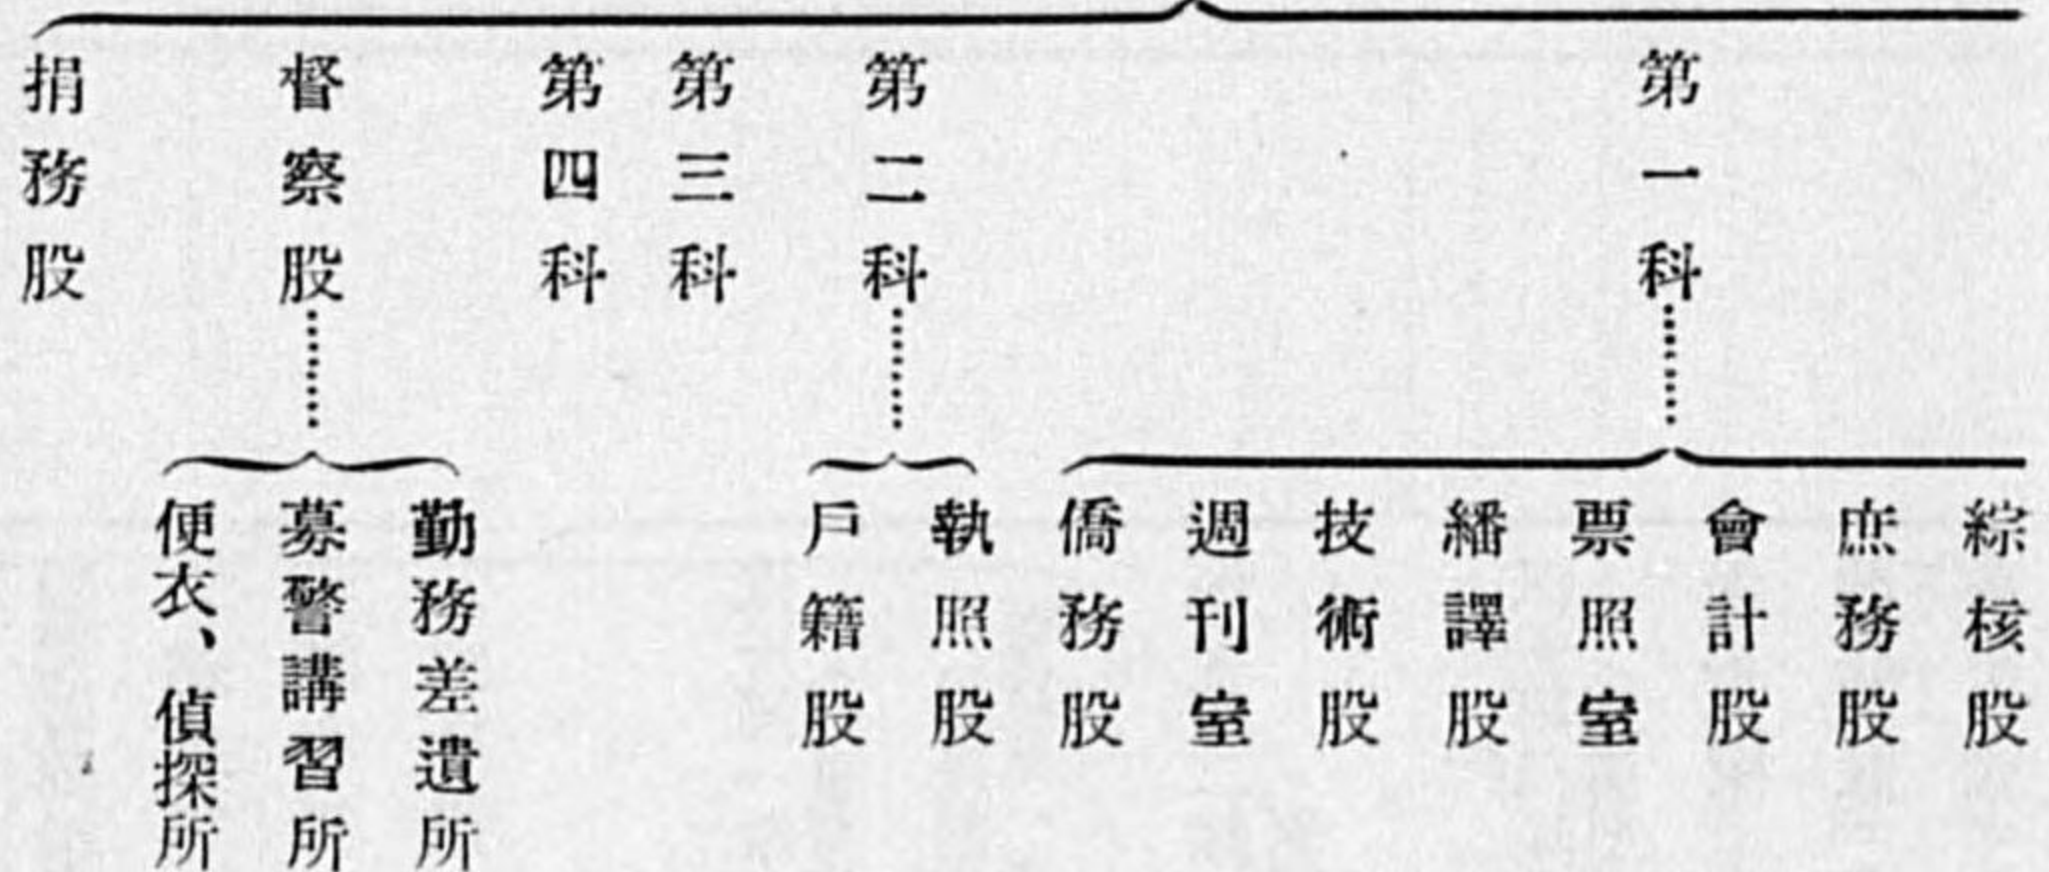 第一科
綜核股
庶務股
會計股
票照室
繙譯股
技術股
週刊室
僑務股
第二科
執照股
戶籍股
第三科
第四科
督察股
勤務差遣所
募警講習所
便衣、偵探所
捐務股